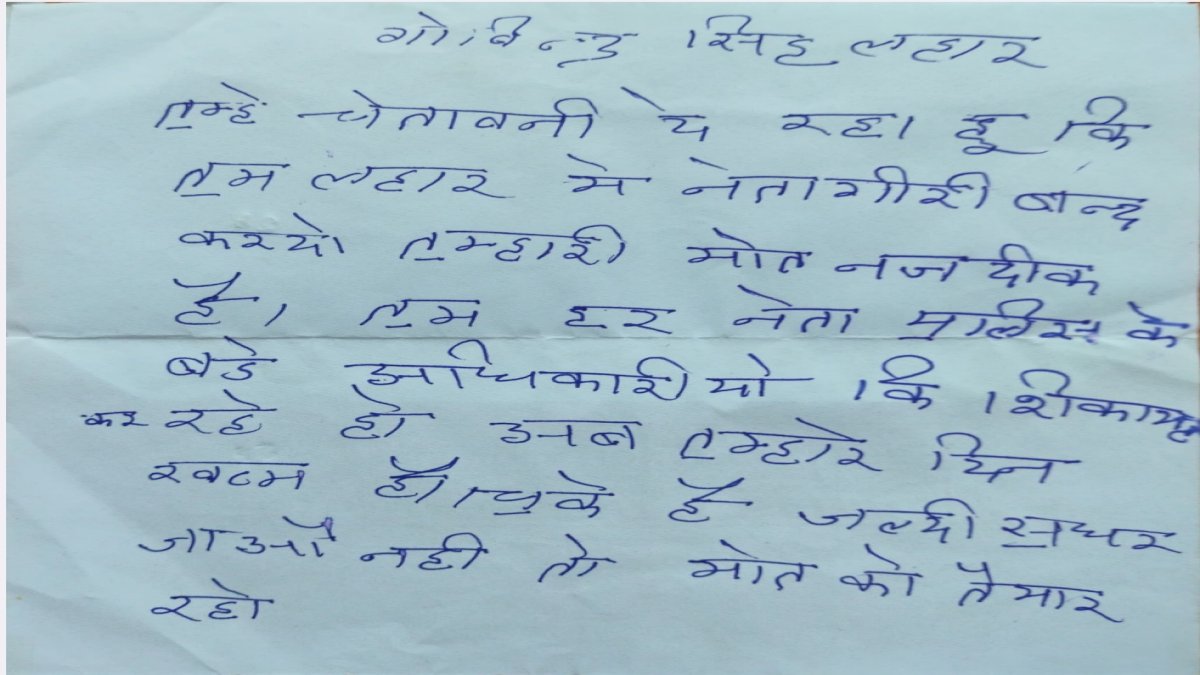 गोविन्द्र सिह लहार
तुम्हे चेतावनी दे रहा हू कि
तुम लहार मे नेतागीरी बन्द
करदो तुम्हारी मोत नजदीक
है। तुम हर नेता पुलिस के
बडे अधिकारीयो कि शिकायत
कर रहे हो अब तुम्हारे दिन
खत्म हो चुके है जल्दी सुधर
जाओ नही तो मोत को तैयार
रहो